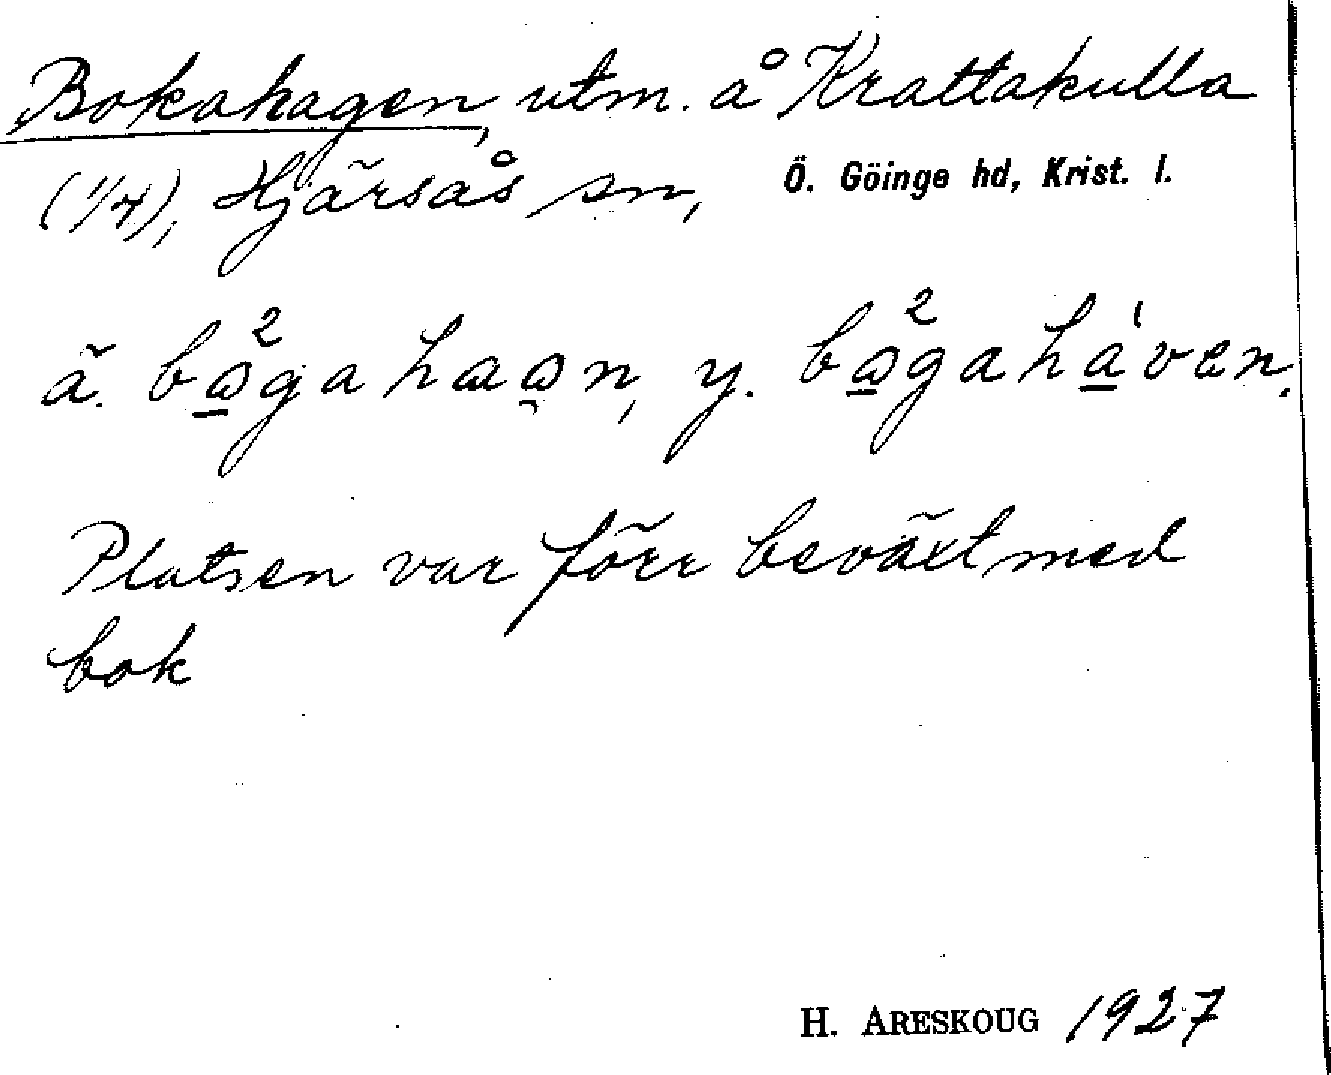 Bokahagen, utm. å Krattakulla
(1/4), Hjärsås sn, Ö. Göinge hd, Krist. l.
ä. bω̱²gahaωn, y. bω̱²gahá̱ven.
Platsen var förr beväxt med
bok
H. ARESKOUG 1927